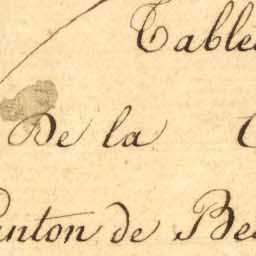 Table
De la C
anton de Be